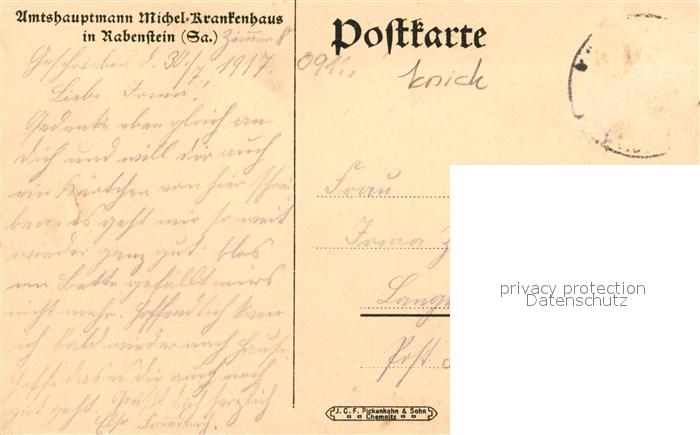 Amtshauptmann Michel-Krankenhaus
in Rabenstein (Sa.) Zimmer 8
Geschrieben d. 30./7 1917.
Liebe Irma!
Gedenke eben gleich an
Dich und will dir auch
ein Kärtchen von hier schrei
ben, es geht mir so weit
wieder ganz gut. blos
im Bette gefällt mirs
nicht mehr. Hoffendlich kann
ich bald wieder nach Hause.
Hoffe das es dir auch noch
gut geht. Grüßt dich herzlich
Postkarte
knick
Frau
Irma
Lange
Post
J. C. F. Pickenhahn & Sohn
Chemnitz
privacy protection
Datenschutz